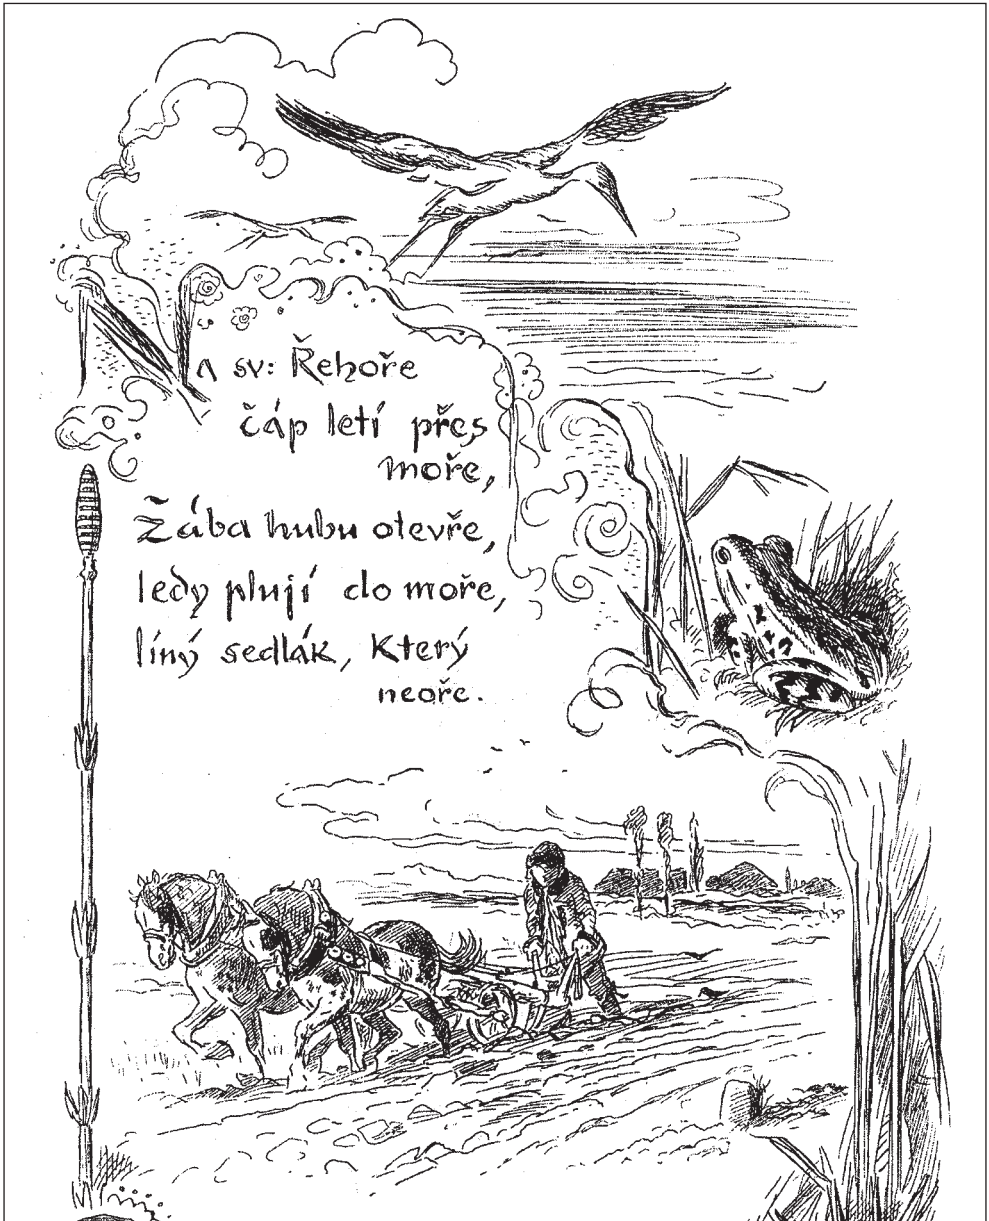 Na sv: Řehoře
čáp letí přes
moře,
Žába hubu otevře,
ledy plují do moře,
líný sedlák, který
neoře.